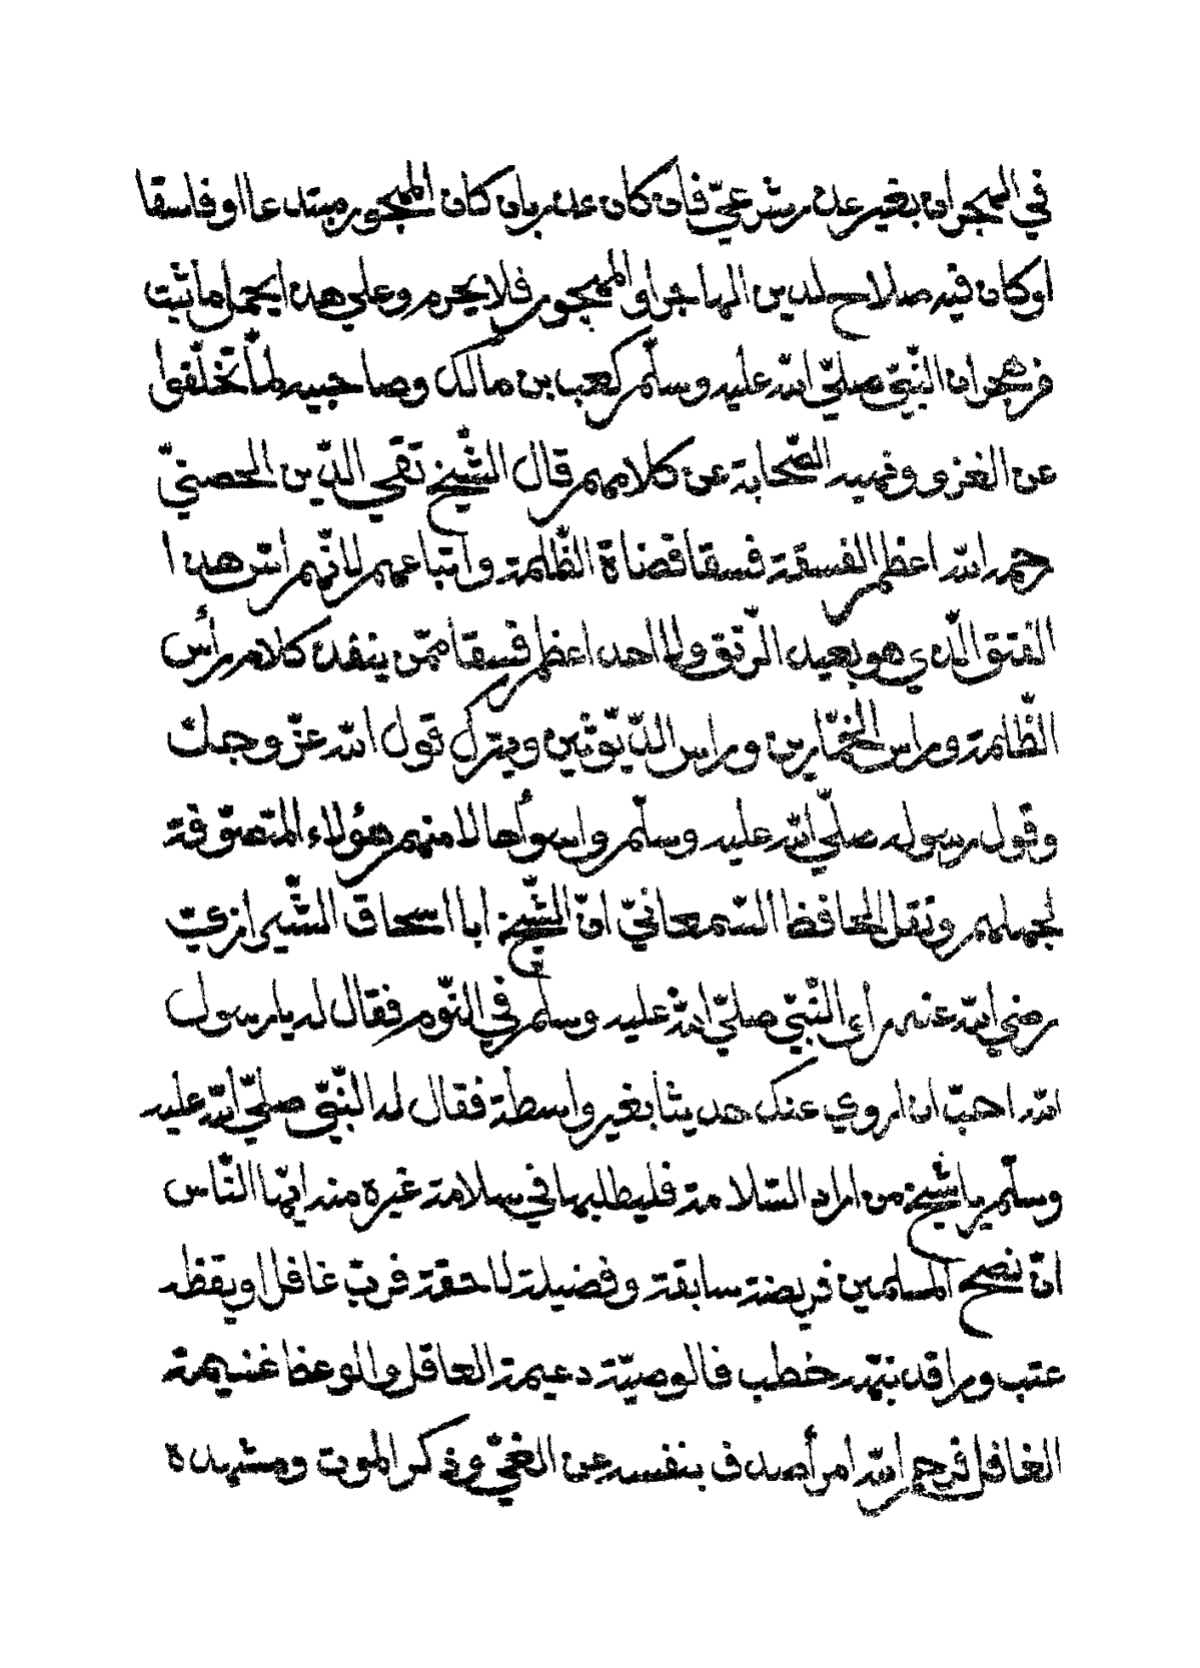 في الهجران بغير عذر شرعيّ فان كان عذر بان كان المهجور مبتدعا او فاسقا
او كان فيه صلاح لدين الهاجر او المهجور فلا يحرم وعلي هذا يحمل ما ثبت
من هجران النّبيّ صليّ الله عليه وسلّم كعب بن مالك وصاحبيه لمّا تخلّفوا
عن الغزو ونهيه الصّحابة عن كلامهم قال الشّيخ تقي الدّين الحصنيّ
رحمه الله اعظم الفسقة فسقا قضاة الظّلمة واتباعهم لانّهم اسّ هذا
الفتق الّذي هو بعيد الرّتق ولا احد اعظم فسقا ممّن ينفذ كلام رأس
الظّالمة وراس الخمّارين وراس الدّيّوثين ويترك قول الله عزّ وجلّ
وقول رسوله صليّ الله عليه وسلّم واسوأ حالا منهم هؤلاء المتصوّفة
لجهلهم ونقل الحافظ السّمعانيّ انّ الشّيخ ابا اسحاق الشّيرازيّ
رضي الله عنه رأي النّبيّ صليّ الله عليه وسلّم في النّوم فقال له يا رسول
الله احبّ ان اروي عنك حديثا بغير واسطة فقال له النّبيّ صليّ الله عليه
وسلّم يا شيخ من اراد السّلامة فليطلبها في سلامة غيره منه ايّها النّاس
انّ نصح المسلمين فريضة سابقة وفضيلة لاحقة فربّ غافل ايقظه
عتب وراقد نبّهه خطب فالوصيّة دعيمة العاقل والوعظ غنيمة
الغافل فرحم الله امرأ صدف بنفسه عن الغيّ وذكر الموت ومشهده